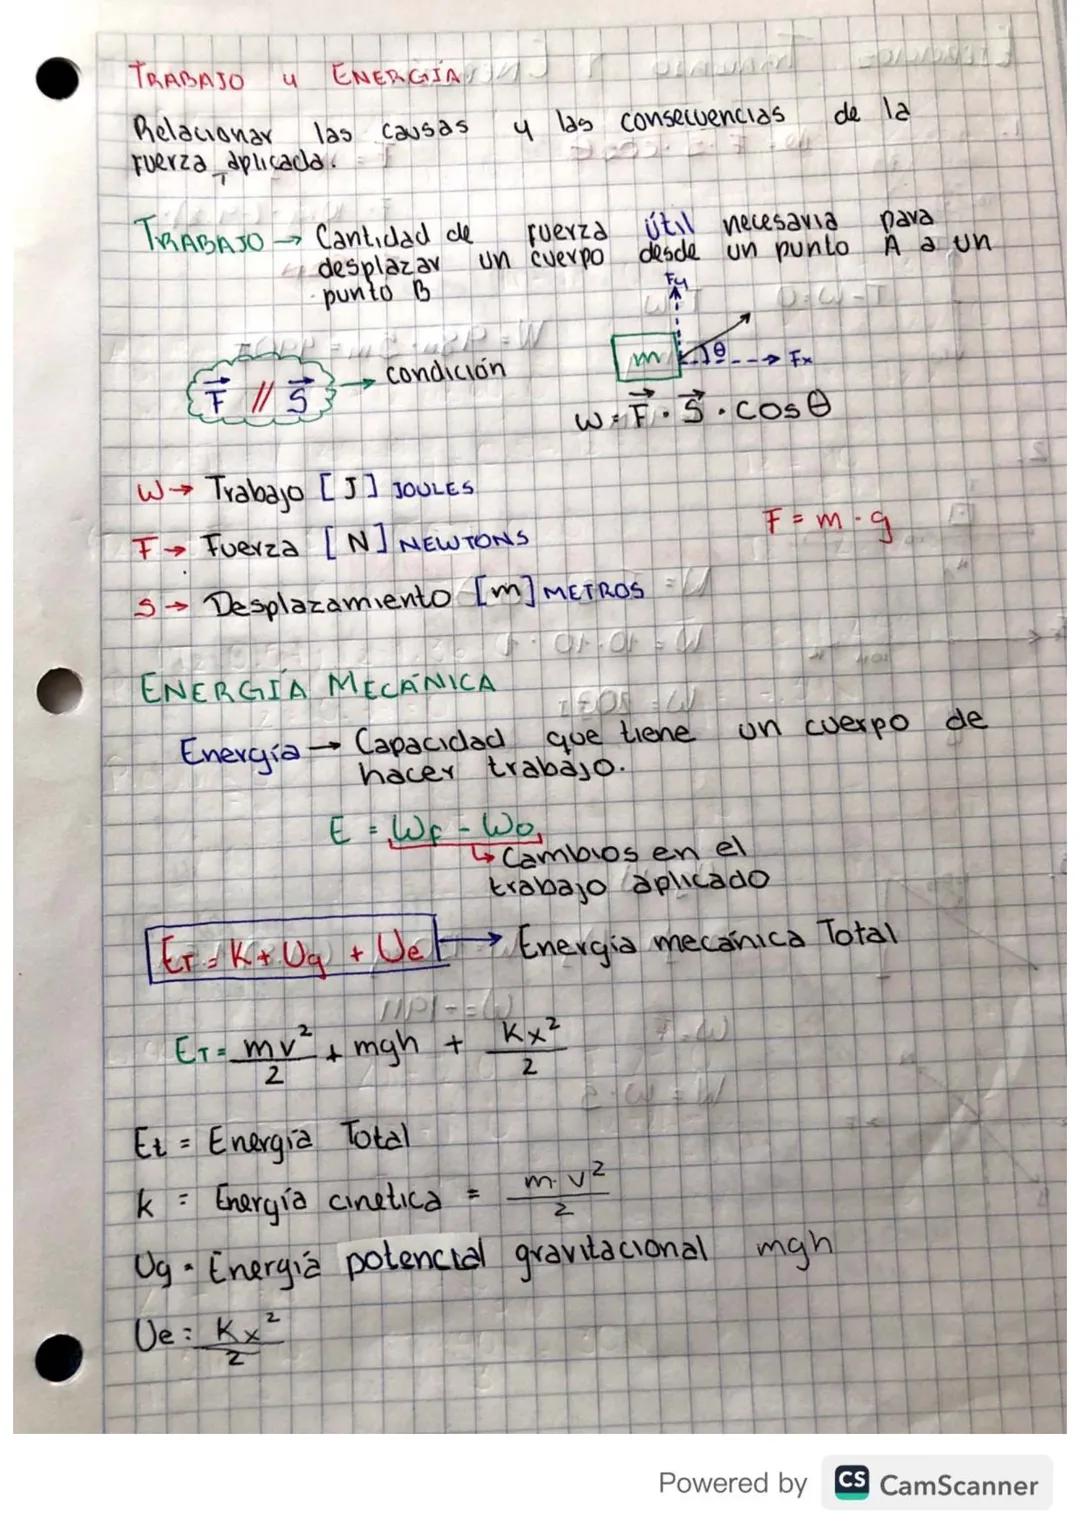 TRABAJO y ENERGÍA
Relacionar las causas y las consecuencias de la
fuerza aplicada.
TRABAJO → Cantidad de fuerza útil necesaria para
desplazar un cuerpo desde un punto A a un
punto B
Fy
m θ Fx
F⃗ // S⃗ → condición
W = F⃗ · S⃗ · cos θ
W → Trabajo [J] JOULES
F = m · g
F → Fuerza [N] NEWTONS
S → Desplazamiento [m] METROS
ENERGÍA MECÁNICA
Energía → Capacidad que tiene un cuerpo de
hacer trabajo.
E = Wf - Wo
↳ Cambios en el
trabajo aplicado
ET = K + Ug + Ue → Energía mecánica Total
ET = mv²/2 + mgh + Kx²/2
Et = Energía Total
k = Energía cinetica = m·v²/2
Ug = Energía potencial gravitacional mgh
Ue = Kx²/2
Powered by CS CamScanner